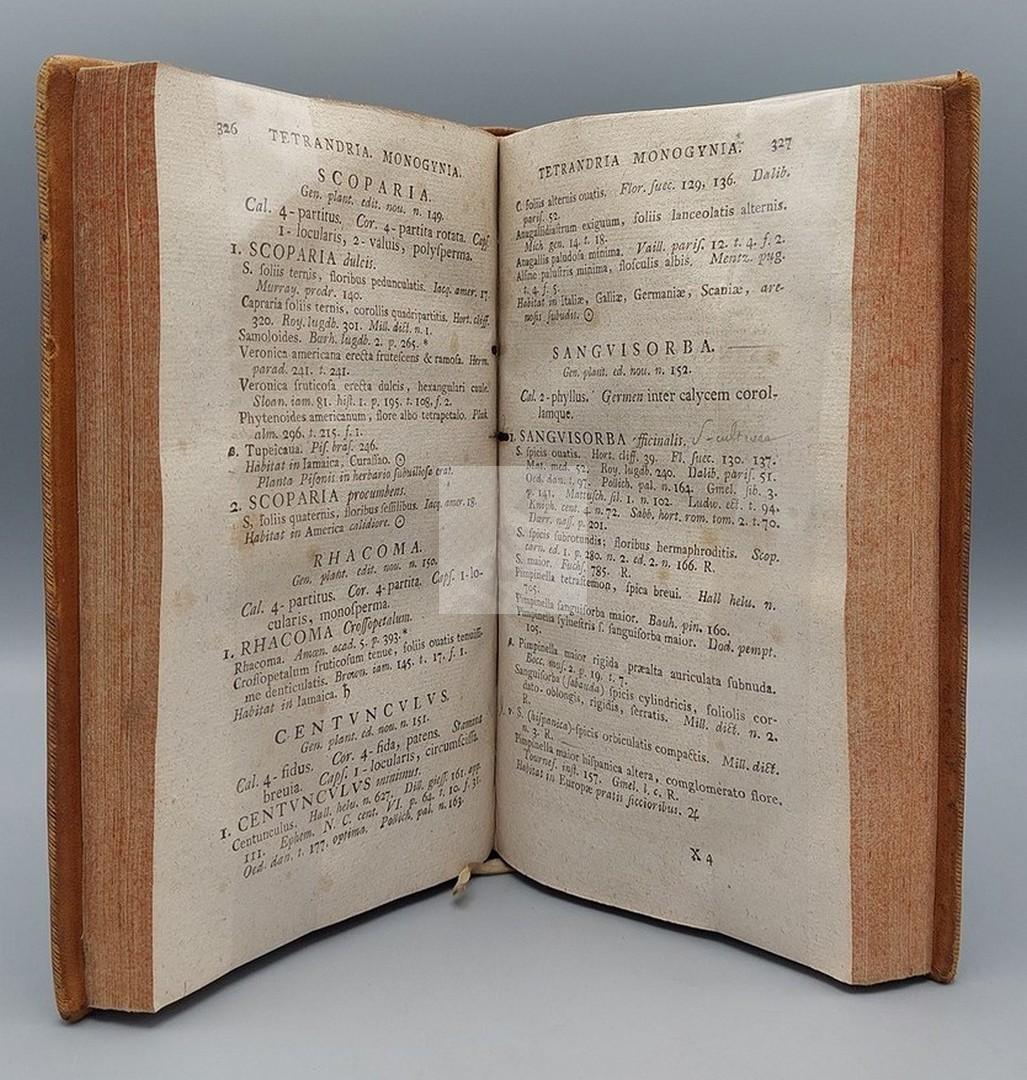 326 TETRANDRIA. MONOGYNIA.
SCOPARIA.
Gen. plant. edit. nou. n. 149.
Cal. 4-partitus. Cor. 4-partita rotata. Capſ.
1-locularis, 2-valuis, polyſperma.
1. SCOPARIA dulcis.
S. foliis ternis, floribus pedunculatis. Iacq. amer. 17.
Murray. prodr. 140.
Capraria foliis ternis, corollis quadripartitis. Hort. cliff.
320. Roy. lugdb. 301. Mill. dict. n. 1.
Samoloides. Bœrh. lugdb. 2. p. 265. *
Veronica americana erecta fruteſcens & ramoſa. Herm.
parad. 241. t. 241.
Veronica fruticoſa erecta dulcis, hexangulari caule.
Sloan. iam. 81. hiſt. 1. p. 195. t. 108. f. 2.
Phytenoides americanum, flore albo tetrapetalo. Pluk.
alm. 296. t. 215. f. 1.
β. Tupeicaua. Piſ. braſ. 246.
Habitat in Iamaica, Curaſſao. ☉
Planta Piſonis in herbario ſubuilloſa erat.
2. SCOPARIA procumbens.
S. foliis quaternis, floribus ſeſſilibus. Iacq. amer. 18.
Habitat in America calidiore. ☉
RHACOMA.
Gen. plant. edit. nou. n. 150.
Cal. 4-partitus. Cor. 4-partita. Capſ. 1-lo-
cularis, monoſperma.
1. RHACOMA Croſſopetalum.
Rhacoma. Amœn. acad. 5. p. 393. *
Croſſopetalum fruticoſum tenue, foliis ouatis tenuiſſi-
me denticulatis. Brown. iam. 145. t. 17. f. 1.
Habitat in Iamaica. ♄
CENTVNCVLVS.
Gen. plant. ed. nou. n. 151.
Cal. 4-fidus. Cor. 4-fida, patens. Stamina
breuia. Capſ. 1-locularis, circumſciſſa.
1. CENTVNCVLVS minimus.
Centunculus. Hall. helu. n. 627. Dill. gieſſ. 161. app.
111. Ephem. N. C. cent. VI. p. 64. t. 10. f. 3.
Oed. dan. t. 177. optima. Pollich. pal. n. 163.
TETRANDRIA MONOGYNIA. 327
C. foliis alternis ouatis. Flor. ſuec. 129, 136. Dalib.
pariſ. 52.
Anagallidiaſtrum exiguum, foliis lanceolatis alternis.
Mich. gen. 14. t. 18.
Anagallis paludoſa minima. Vaill. pariſ. 12. t. 4. f. 2.
Alſine paluſtris minima, floſculis albis. Mentz. pug.
t. 4. f. 5.
Habitat in Italiæ, Galliæ, Germaniæ, Scaniæ, are-
noſis ſubudis. ☉
SANGVISORBA.
Gen. plant. ed. nou. n. 152.
Cal. 2-phyllus. Germen inter calycem corol-
lamque.
1. SANGVISORBA officinalis.
S. ſpicis ouatis. Hort. cliff. 39. Fl. ſuec. 130. 137.
Mat. med. 52. Roy. lugdb. 240. Dalib. pariſ. 51.
Oed. dan. t. 97. Pollich. pal. n. 164. Gmel. ſib. 3.
p. 141. Mattuſch. ſil. 1. n. 102. Ludw. ect. t. 94.
Kniph. cent. 4. n. 72. Sabb. hort. rom. tom. 2. t. 70.
Dœrr. naſſ. p. 201.
S. ſpicis ſubrotundis; floribus hermaphroditis. Scop.
carn. ed. 1. p. 280. n. 2. ed. 2. n. 166. R.
S. maior. Fuchſ. 785. R.
Pimpinella tetraſtemon, ſpica breui. Hall helu. n.
705.
Pimpinella ſanguiſorba maior. Bauh. pin. 160.
Pimpinella ſylueſtris ſ. ſanguiſorba maior. Dod. pempt.
105.
β. Pimpinella maior rigida præalta auriculata ſubnuda.
Bocc. muſ. 2. p. 19. t. 7.
Sanguiſorba (ſabauda) ſpicis cylindricis, foliolis cor-
dato-oblongis, rigidis, ſerratis. Mill. dict. n. 2.
R.
γ. S. (hiſpanica) ſpicis orbiculatis compactis. Mill. dict.
n. 3. R.
Pimpinella maior hiſpanica altera, conglomerato flore.
Tournef. inſt. 157. Gmel. l. c. R.
Habitat in Europæ pratis ſiccioribus. ♃
X 4